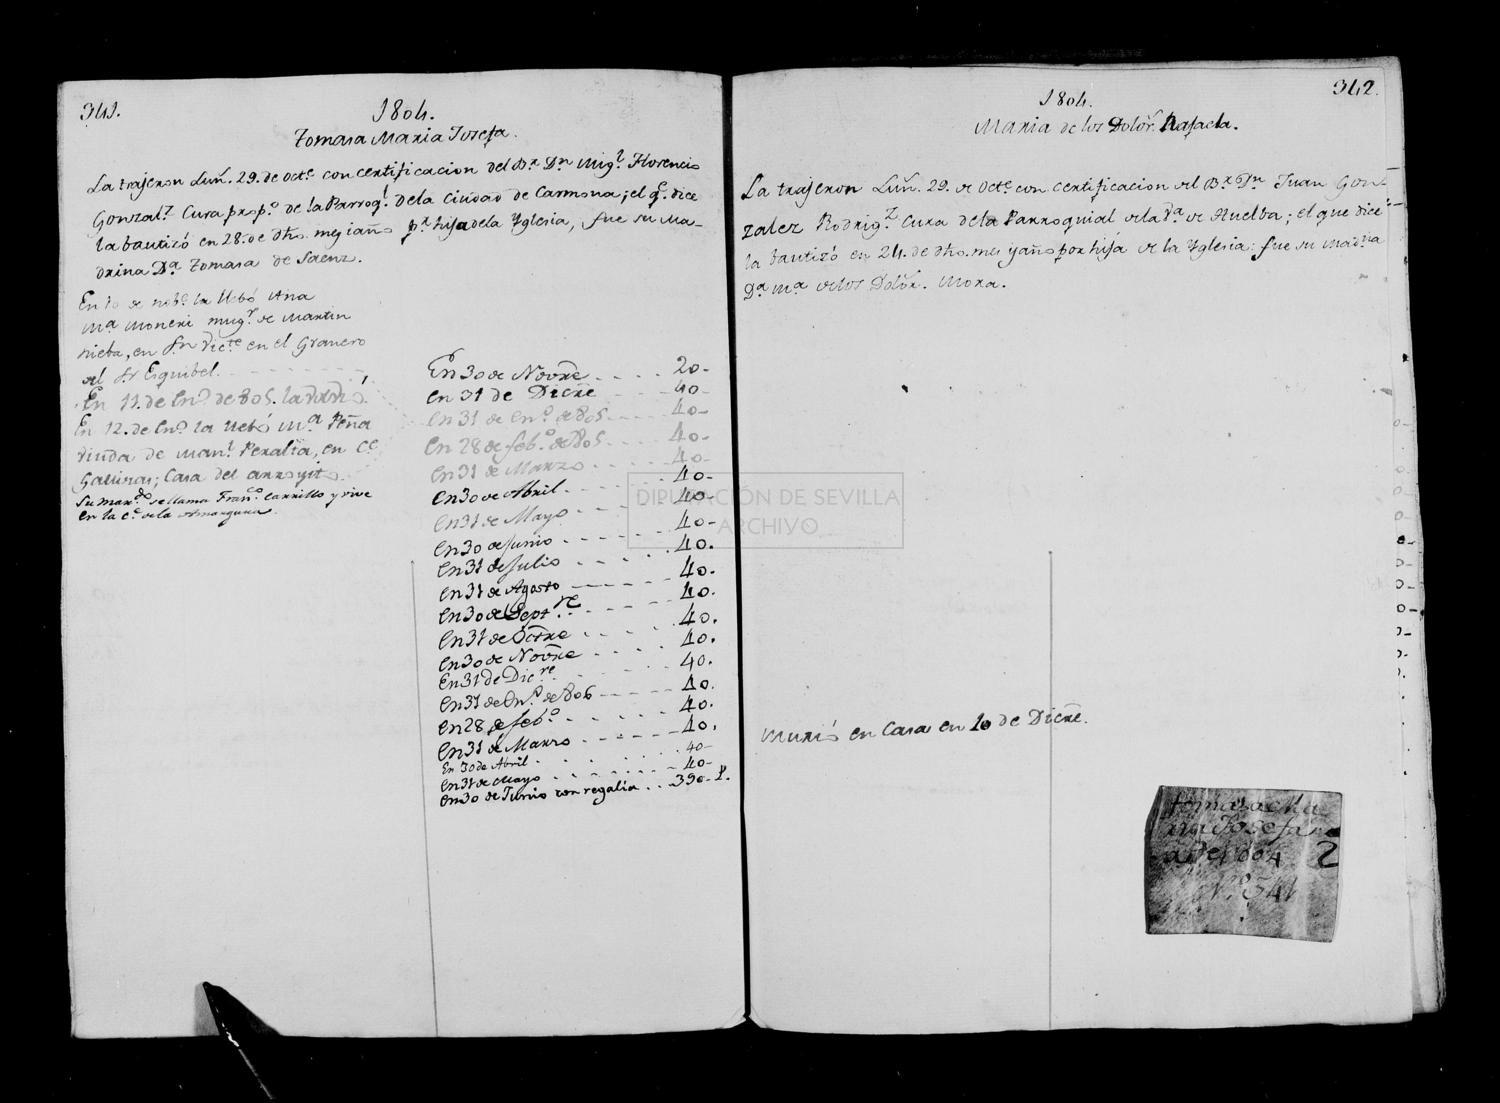 341.
1804.
Tomasa Maria Josefa.
La trajeron Lun. 29. de Octe. con certificacion del Br. Dn. Migl. Florencio
Gonzalz. Cura prop.o de la Parroql. de la Ciudad de Carmona; el qe. dice
la bautizó en 28. de dho. mes i año pr. hija de la Yglesia, fue su Ma-
drina Da. Tomasa de Saenz.
En 10 de nobe. la llebó Ana
Ma. Moneri mugr. de Martin
nieba, en Sn. Victe. en el Granero
del Sr. Esquibel.
En 11. de En.o de 805. la
En 12. de En.o la llebó Ma. Peña
viuda de Manl. Peralta, en Ce.
Gallinas; Casa del arroyito.
Su mar.do se llama Fran.co Carrillo y vive
en la ce. de la Amargura.
En 30 de Novre. . . . . 20-
en 31 de Dicre . . . . 40-
en 31 de En.o de 805. . . . 40-
en 28 de feb.o de 805. . . . 40-
en 31 de Marzo . . . . 40-
en 30 de Abril . . . . 40-
en 31 de Mayo . . . . 40-
en 30 de Junio . . . . 40-
en 31 de Julio . . . . 40.
en 31 de Agosto . . . . 40.
en 30 de Septre. . . . 40.
en 31 de Octre . . . . 40.
en 30 de Novre . . . . 40.
En 31 de Dicre. . . . 40.
en 31 de En.o de 806 . . . . 40.
en 28 de feb.o . . . . 40.
en 31 de Marzo . . . . 40.
En 30 de Abril . . . . 40-
en 31 de Mayo . . . . 40-
en 30 de Junio con regalia . . 390-
342.
1804.
Maria de los Dolor. Rafaela.
La trajeron Lun. 29. de Octe. con certificacion del Br. Dn. Juan Gon-
zalez Rodrigz. Cura de la Parroquial de la Va. de Huelba; el que dice
la bautizó en 24. de dho. mes y año por hija de la Yglesia: fue su Madrina
Da. Ma. de los Dolor. Mora.
Murió en Casa en 10 de Dicre.
Tomasa Ma
ria Josefa
a De 1804 2
N.o 341
DIPUTACIÓN DE SEVILLA
ARCHIVO